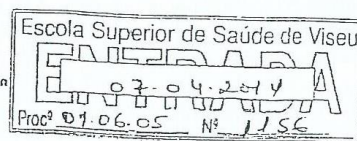 Escola Superior de Saúde de Viseu
ENTRADA
07.04.2014
Procº 01.06.05 Nº 1156